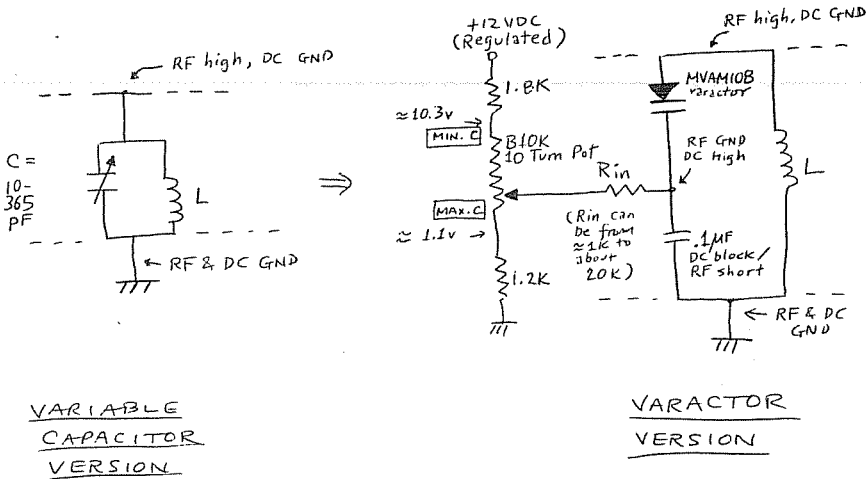 RF high, DC GND
C =
10-
365
PF
L
RF & DC GND
VARIABLE
CAPACITOR
VERSION
⇒
+12VDC
(Regulated)
1.8K
≈10.3v
MIN. C
B10K
10 Turn Pot
MAX. C
≈ 1.1v
1.2K
Rin
(Rin can
be from
≈1K to
about
20K)
RF high, DC GND
MVAM108
varactor
RF GND
DC high
L
.1μF
DC block/
RF short
RF & DC
GND
VARACTOR
VERSION